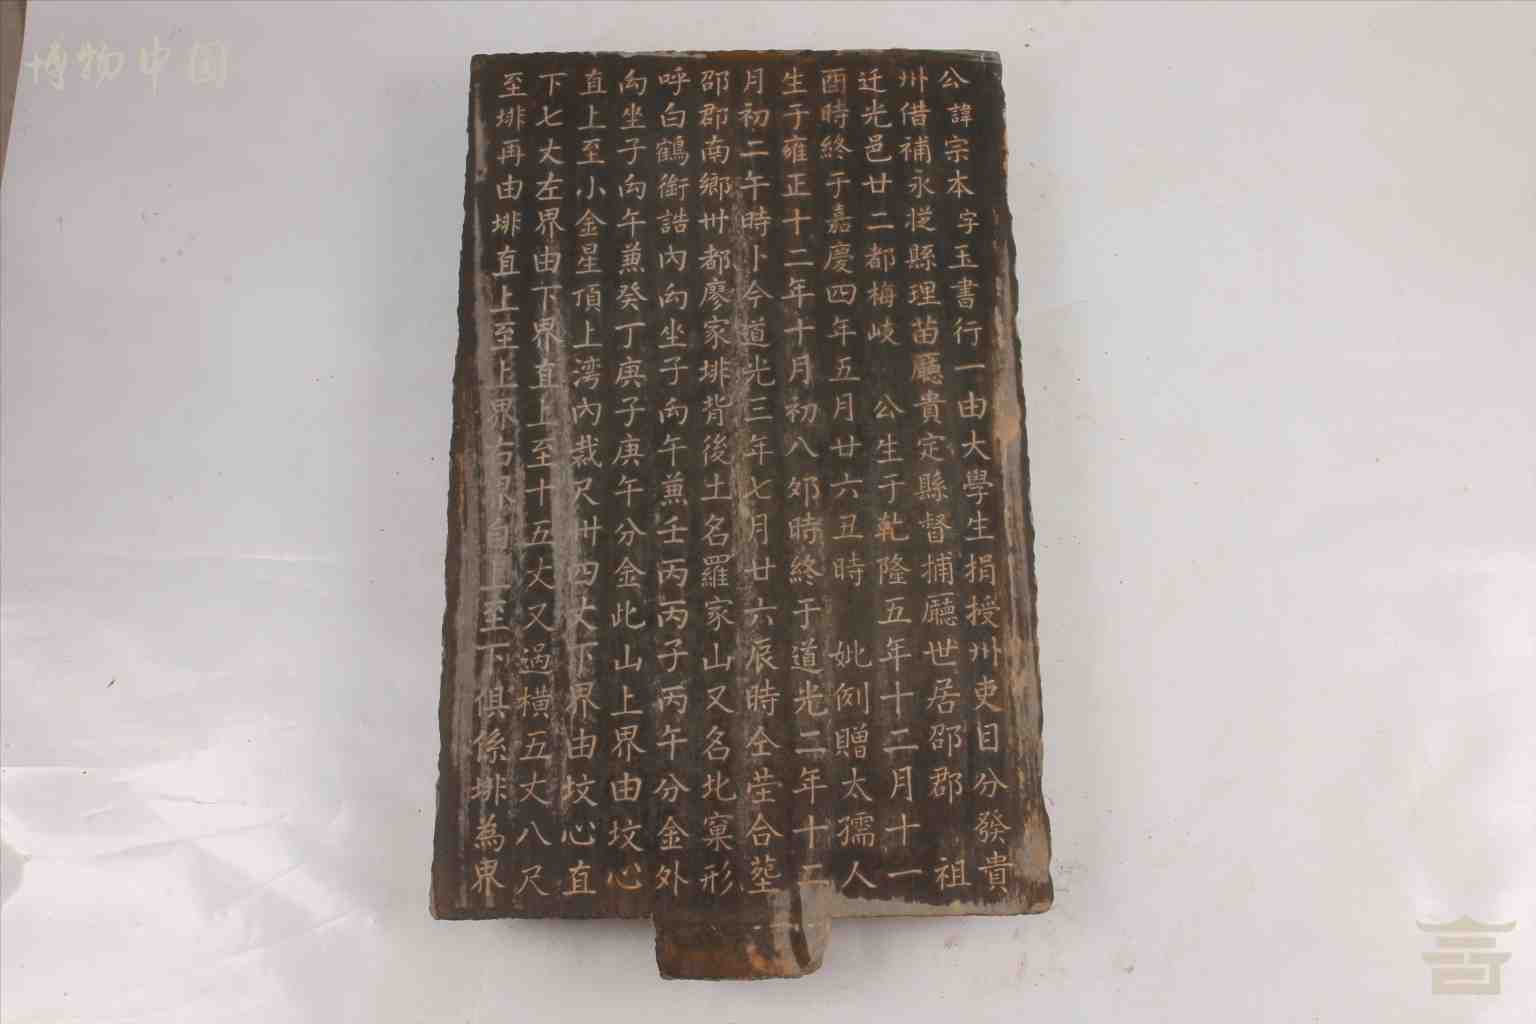 博物中国
公諱宗本字玉書行一由大學生捐授州吏目分發貴
州借補永從縣理苗廳貴定縣督捕廳世居邵郡 祖
迁光邑廿二都梅岐 公生于乾隆五年十二月十一
酉時終于嘉慶四年五月廿六丑時 妣例贈太孺人
生于雍正十二年十月初八卯時終于道光二年十二
月初二午時卜今道光三年七月廿六辰時仝塋合塟
邵郡南鄉卅都廖家排背後土名羅家山又名北窠形
呼白鶴衔誥內向坐子向午兼壬丙丙子丙午分金外
向坐子向午兼癸丁庚子庚午分金此山上界由坟心
直上至小金星頂上湾內裁尺卅四丈下界由坟心直
下七丈左界由下界直上至十五丈又過橫五丈八尺
至排再由排直上至上界右界自上至下俱係排為界